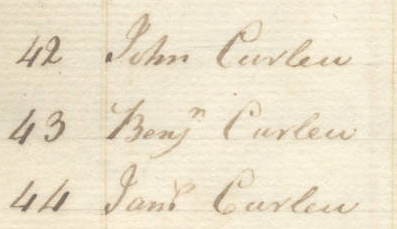 42 John Curlew
43 Benjⁿ Curlew
44 Curlew